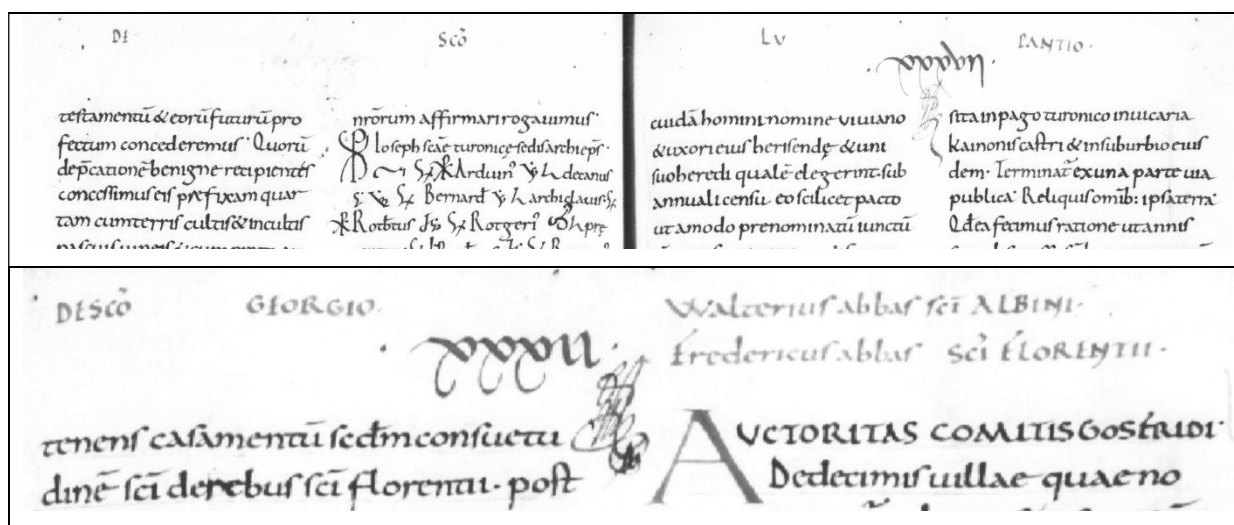 DE SCŌ LV PANTIO·
testamentū & eorū futurū pro
fectum concederemus· Quorū
dep̄cationē benigne recipientes
concessimus eis prefixam quar
tam cum terris cultis & incultis
nr̄orum affirmari rogauimus·
Ioseph scāe turonicę sedis archiep̄s·
Arduin' decanus
Bernard archiclauis
Rotb̄tus Rotgeri' prę
cuidā homini nomine viuiano
& uxori eius hersendę & uni
suo heredi qualē elegerint· sub
annuali censu eo scilicet pacto
ut amodo prenominatū iunctū
sita in pago turonico in uicaria
kainonis castri & in suburbio eius
dem· Terminat̄ ex una parte uia
publica· Reliquis omib: ipsa terra·
Qd̄ ea fecimus ratione ut annis
DE SCŌ GEORGIO·
tenens casamentū secd̄m consuetu
dinē scī de rebus scī florentii· post
Walterius abbas scī ALBINI·
Fredericus abbas scī FLORENTII·
AVCTORITAS COMITIS GOSFRIDI·
De decimis uillae quae no